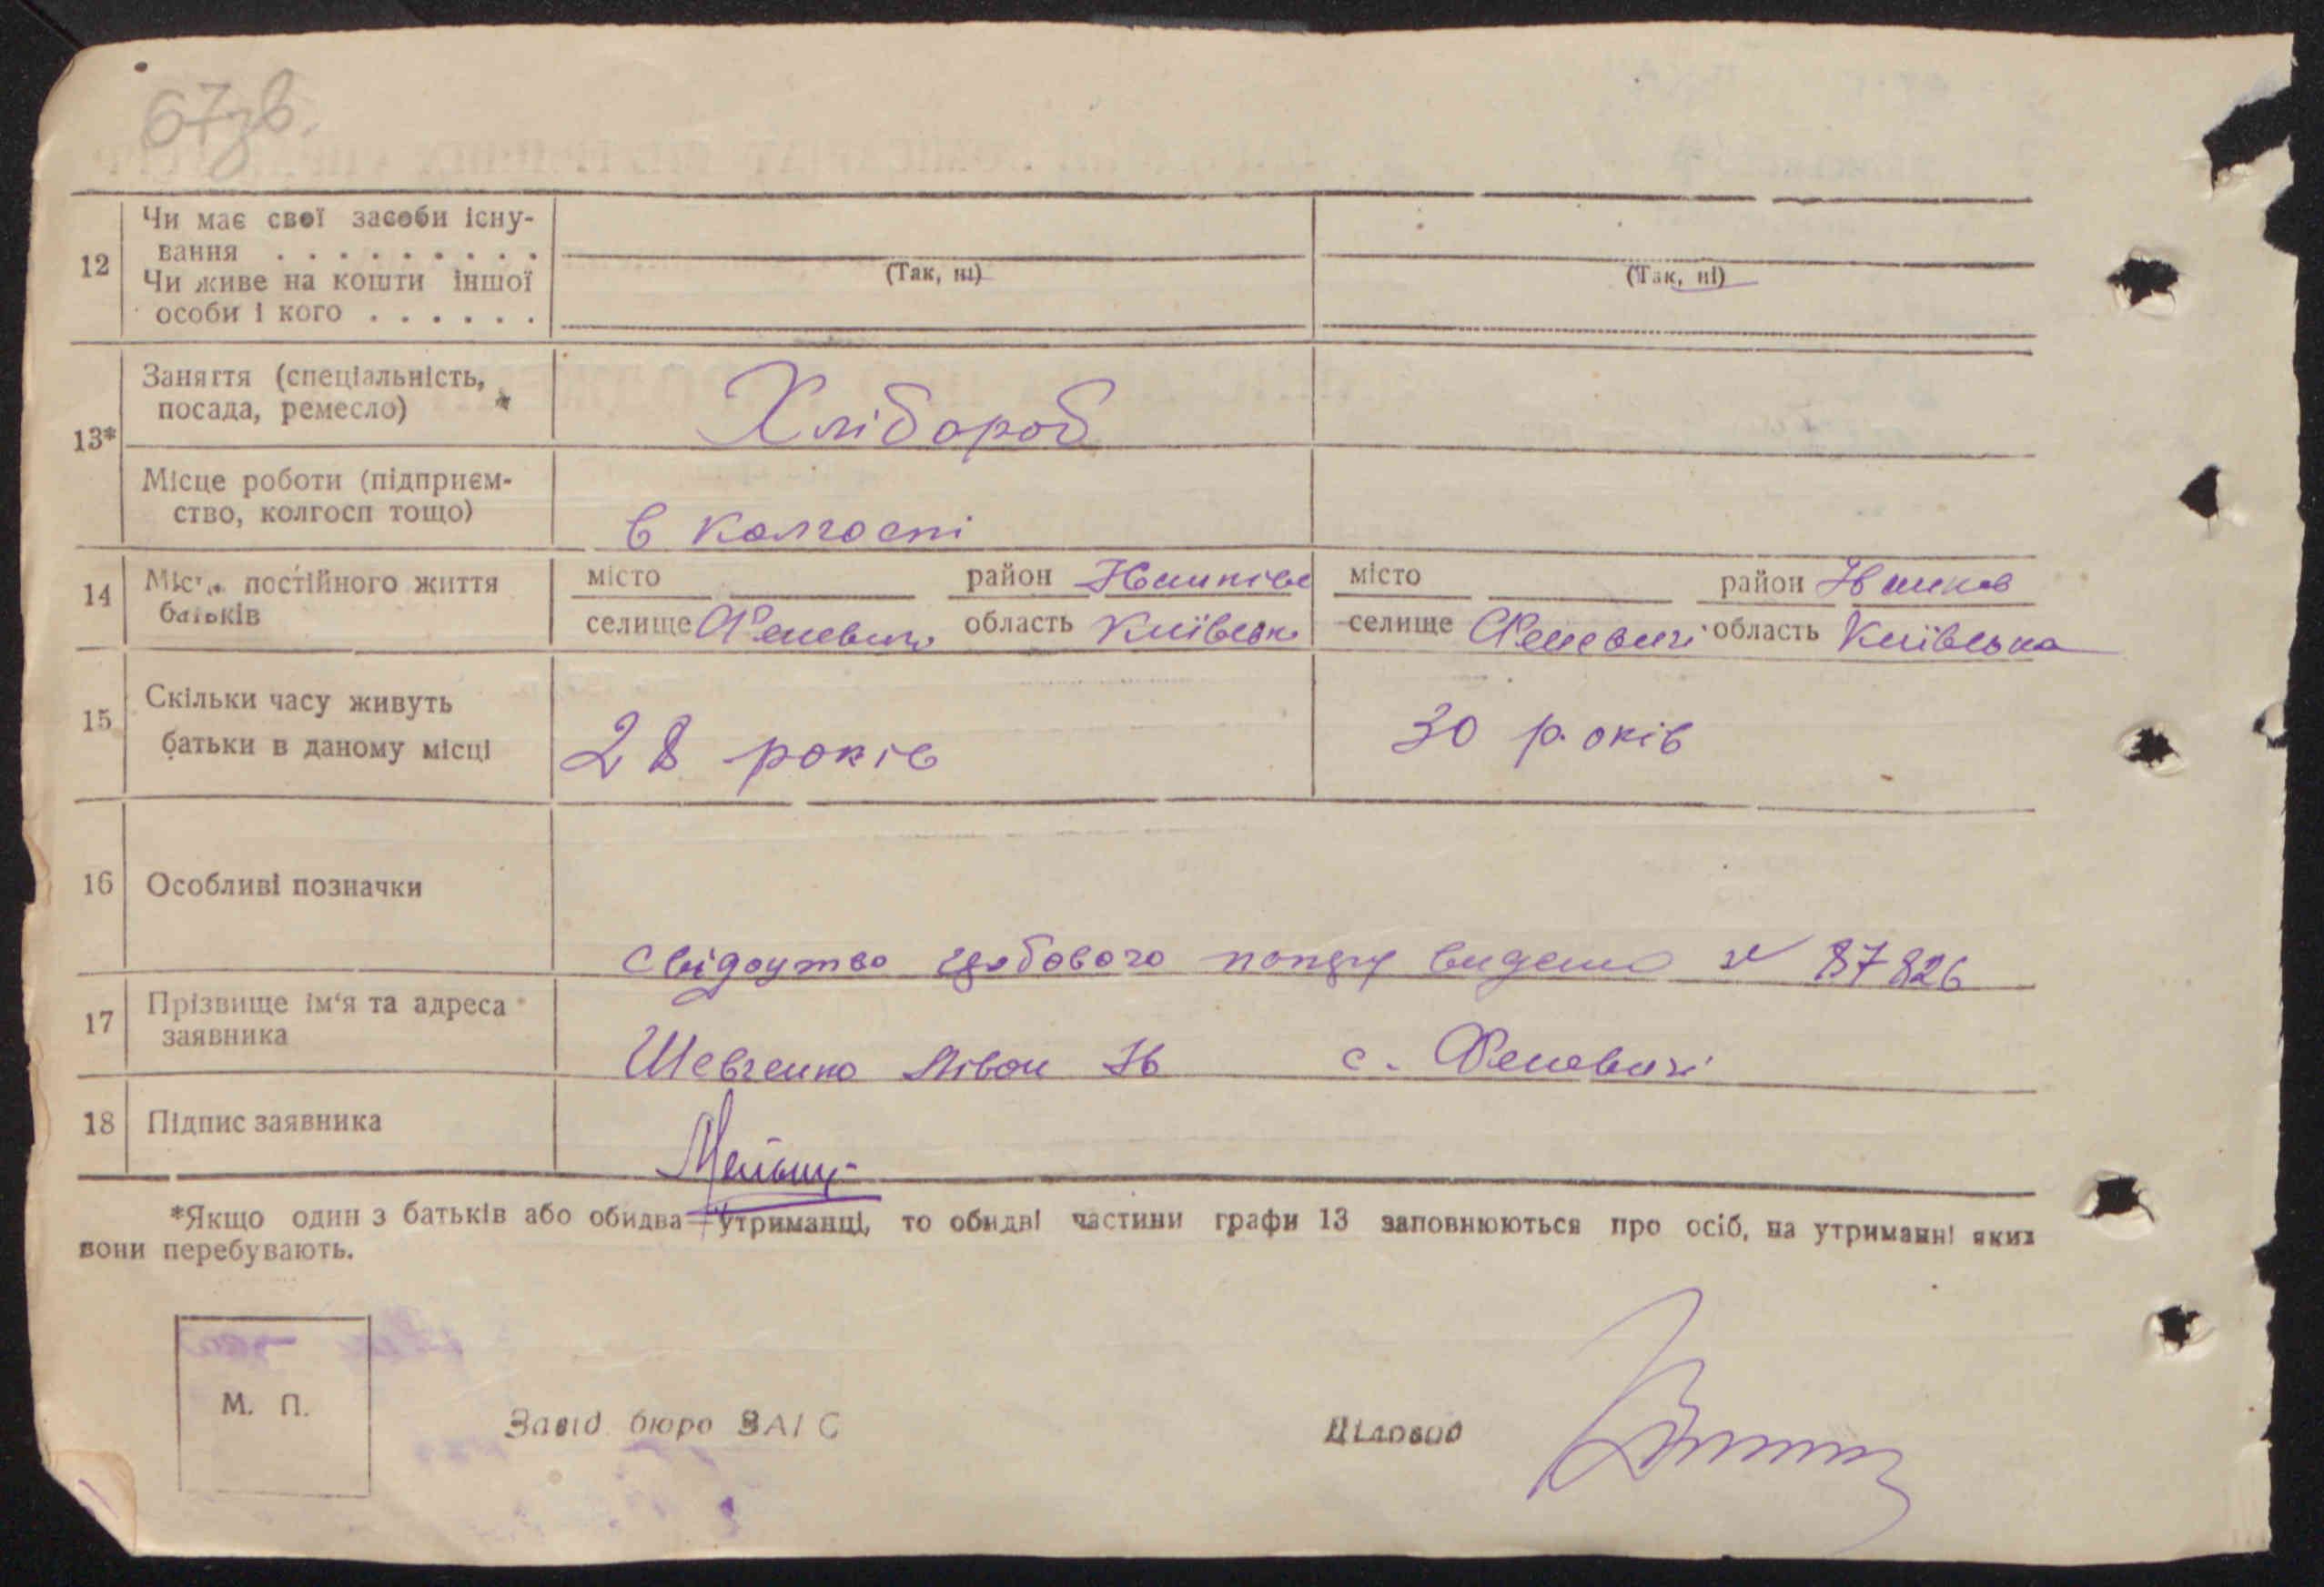 67зв.
12 Чи має свої засоби існу-
вання . . . . . . . . .
(Так, ні) (Так, ні)
Чи живе на кошти іншої
особи і кого . . . . . .
13* Заняття (спеціальність,
посада, ремесло) Хлібороб
Місце роботи (підприєм-
ство, колгосп тощо) в колгоспі
14 Місце постійного життя
батьків
місто район місто район
селище Феневичі область Київськ селище Феневичі область Київська
15 Скільки часу живуть
батьки в даному місці 28 років 30 років
16 Особливі позначки
Свідоцтво видено № 87826
17 Прізвище ім'я та адреса
заявника
Шевченко с. Феневичі
18 Підпис заявника
*Якщо один з батьків або обидва утриманці, то обидві частини графи 13 заповнюються про осіб, на утриманні яких
вони перебувають.
М. П.
Завід бюро ЗАГС Діловод